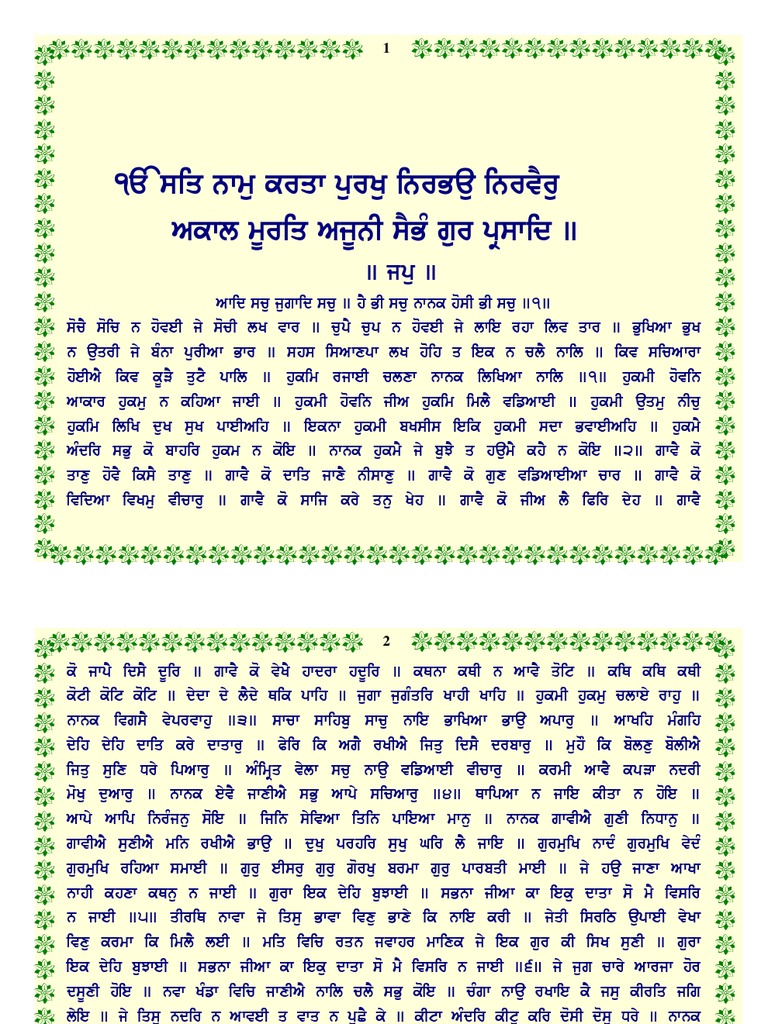 1
ੴ ਸਤਿ ਨਾਮੁ ਕਰਤਾ ਪੁਰਖੁ ਨਿਰਭਉ ਨਿਰਵੈਰੁ
ਅਕਾਲ ਮੂਰਤਿ ਅਜੂਨੀ ਸੈਭੰ ਗੁਰ ਪ੍ਰਸਾਦਿ ॥
॥ ਜਪੁ ॥
ਆਦਿ ਸਚੁ ਜੁਗਾਦਿ ਸਚੁ ॥ ਹੈ ਭੀ ਸਚੁ ਨਾਨਕ ਹੋਸੀ ਭੀ ਸਚੁ ॥੧॥
ਸੋਚੈ ਸੋਚਿ ਨ ਹੋਵਈ ਜੇ ਸੋਚੀ ਲਖ ਵਾਰ ॥ ਚੁਪੈ ਚੁਪ ਨ ਹੋਵਈ ਜੇ ਲਾਇ ਰਹਾ ਲਿਵ ਤਾਰ ॥ ਭੁਖਿਆ ਭੁਖ
ਨ ਉਤਰੀ ਜੇ ਬੰਨਾ ਪੁਰੀਆ ਭਾਰ ॥ ਸਹਸ ਸਿਆਣਪਾ ਲਖ ਹੋਹਿ ਤ ਇਕ ਨ ਚਲੈ ਨਾਲਿ ॥ ਕਿਵ ਸਚਿਆਰਾ
ਹੋਈਐ ਕਿਵ ਕੂੜੈ ਤੁਟੈ ਪਾਲਿ ॥ ਹੁਕਮਿ ਰਜਾਈ ਚਲਣਾ ਨਾਨਕ ਲਿਖਿਆ ਨਾਲਿ ॥੧॥ ਹੁਕਮੀ ਹੋਵਨਿ
ਆਕਾਰ ਹੁਕਮੁ ਨ ਕਹਿਆ ਜਾਈ ॥ ਹੁਕਮੀ ਹੋਵਨਿ ਜੀਅ ਹੁਕਮਿ ਮਿਲੈ ਵਡਿਆਈ ॥ ਹੁਕਮੀ ਉਤਮੁ ਨੀਚੁ
ਹੁਕਮਿ ਲਿਖਿ ਦੁਖ ਸੁਖ ਪਾਈਅਹਿ ॥ ਇਕਨਾ ਹੁਕਮੀ ਬਖਸੀਸ ਇਕਿ ਹੁਕਮੀ ਸਦਾ ਭਵਾਈਅਹਿ ॥ ਹੁਕਮੈ
ਅੰਦਰਿ ਸਭੁ ਕੋ ਬਾਹਰਿ ਹੁਕਮ ਨ ਕੋਇ ॥ ਨਾਨਕ ਹੁਕਮੈ ਜੇ ਬੁਝੈ ਤ ਹਉਮੈ ਕਹੈ ਨ ਕੋਇ ॥੨॥ ਗਾਵੈ ਕੋ
ਤਾਣੁ ਹੋਵੈ ਕਿਸੈ ਤਾਣੁ ॥ ਗਾਵੈ ਕੋ ਦਾਤਿ ਜਾਣੈ ਨੀਸਾਣੁ ॥ ਗਾਵੈ ਕੋ ਗੁਣ ਵਡਿਆਈਆ ਚਾਰ ॥ ਗਾਵੈ ਕੋ
ਵਿਦਿਆ ਵਿਖਮੁ ਵੀਚਾਰੁ ॥ ਗਾਵੈ ਕੋ ਸਾਜਿ ਕਰੇ ਤਨੁ ਖੇਹ ॥ ਗਾਵੈ ਕੋ ਜੀਅ ਲੈ ਫਿਰਿ ਦੇਹ ॥ ਗਾਵੈ
2
ਕੋ ਜਾਪੈ ਦਿਸੈ ਦੂਰਿ ॥ ਗਾਵੈ ਕੋ ਵੇਖੈ ਹਾਦਰਾ ਹਦੂਰਿ ॥ ਕਥਨਾ ਕਥੀ ਨ ਆਵੈ ਤੋਟਿ ॥ ਕਥਿ ਕਥਿ ਕਥੀ
ਕੋਟੀ ਕੋਟਿ ਕੋਟਿ ॥ ਦੇਦਾ ਦੇ ਲੈਦੇ ਥਕਿ ਪਾਹਿ ॥ ਜੁਗਾ ਜੁਗੰਤਰਿ ਖਾਹੀ ਖਾਹਿ ॥ ਹੁਕਮੀ ਹੁਕਮੁ ਚਲਾਏ ਰਾਹੁ ॥
ਨਾਨਕ ਵਿਗਸੈ ਵੇਪਰਵਾਹੁ ॥੩॥ ਸਾਚਾ ਸਾਹਿਬੁ ਸਾਚੁ ਨਾਇ ਭਾਖਿਆ ਭਾਉ ਅਪਾਰੁ ॥ ਆਖਹਿ ਮੰਗਹਿ
ਦੇਹਿ ਦੇਹਿ ਦਾਤਿ ਕਰੇ ਦਾਤਾਰੁ ॥ ਫੇਰਿ ਕਿ ਅਗੈ ਰਖੀਐ ਜਿਤੁ ਦਿਸੈ ਦਰਬਾਰੁ ॥ ਮੁਹੌ ਕਿ ਬੋਲਣੁ ਬੋਲੀਐ
ਜਿਤੁ ਸੁਣਿ ਧਰੇ ਪਿਆਰੁ ॥ ਅੰਮ੍ਰਿਤ ਵੇਲਾ ਸਚੁ ਨਾਉ ਵਡਿਆਈ ਵੀਚਾਰੁ ॥ ਕਰਮੀ ਆਵੈ ਕਪੜਾ ਨਦਰੀ
ਮੋਖੁ ਦੁਆਰੁ ॥ ਨਾਨਕ ਏਵੈ ਜਾਣੀਐ ਸਭੁ ਆਪੇ ਸਚਿਆਰੁ ॥੪॥ ਥਾਪਿਆ ਨ ਜਾਇ ਕੀਤਾ ਨ ਹੋਇ ॥
ਆਪੇ ਆਪਿ ਨਿਰੰਜਨੁ ਸੋਇ ॥ ਜਿਨਿ ਸੇਵਿਆ ਤਿਨਿ ਪਾਇਆ ਮਾਨੁ ॥ ਨਾਨਕ ਗਾਵੀਐ ਗੁਣੀ ਨਿਧਾਨੁ ॥
ਗਾਵੀਐ ਸੁਣੀਐ ਮਨਿ ਰਖੀਐ ਭਾਉ ॥ ਦੁਖੁ ਪਰਹਰਿ ਸੁਖੁ ਘਰਿ ਲੈ ਜਾਇ ॥ ਗੁਰਮੁਖਿ ਨਾਦੰ ਗੁਰਮੁਖਿ ਵੇਦੰ
ਗੁਰਮੁਖਿ ਰਹਿਆ ਸਮਾਈ ॥ ਗੁਰੁ ਈਸਰੁ ਗੁਰੁ ਗੋਰਖੁ ਬਰਮਾ ਗੁਰੁ ਪਾਰਬਤੀ ਮਾਈ ॥ ਜੇ ਹਉ ਜਾਣਾ ਆਖਾ
ਨਾਹੀ ਕਹਣਾ ਕਥਨੁ ਨ ਜਾਈ ॥ ਗੁਰਾ ਇਕ ਦੇਹਿ ਬੁਝਾਈ ॥ ਸਭਨਾ ਜੀਆ ਕਾ ਇਕੁ ਦਾਤਾ ਸੋ ਮੈ ਵਿਸਰਿ
ਨ ਜਾਈ ॥੫॥ ਤੀਰਥਿ ਨਾਵਾ ਜੇ ਤਿਸੁ ਭਾਵਾ ਵਿਣੁ ਭਾਣੇ ਕਿ ਨਾਇ ਕਰੀ ॥ ਜੇਤੀ ਸਿਰਠਿ ਉਪਾਈ ਵੇਖਾ
ਵਿਣੁ ਕਰਮਾ ਕਿ ਮਿਲੈ ਲਈ ॥ ਮਤਿ ਵਿਚਿ ਰਤਨ ਜਵਾਹਰ ਮਾਣਿਕ ਜੇ ਇਕ ਗੁਰ ਕੀ ਸਿਖ ਸੁਣੀ ॥ ਗੁਰਾ
ਇਕ ਦੇਹਿ ਬੁਝਾਈ ॥ ਸਭਨਾ ਜੀਆ ਕਾ ਇਕੁ ਦਾਤਾ ਸੋ ਮੈ ਵਿਸਰਿ ਨ ਜਾਈ ॥੬॥ ਜੇ ਜੁਗ ਚਾਰੇ ਆਰਜਾ ਹੋਰ
ਦਸੂਣੀ ਹੋਇ ॥ ਨਵਾ ਖੰਡਾ ਵਿਚਿ ਜਾਣੀਐ ਨਾਲਿ ਚਲੈ ਸਭੁ ਕੋਇ ॥ ਚੰਗਾ ਨਾਉ ਰਖਾਇ ਕੈ ਜਸੁ ਕੀਰਤਿ ਜਗਿ
ਲੇਇ ॥ ਜੇ ਤਿਸੁ ਨਦਰਿ ਨ ਆਵਈ ਤ ਵਾਤ ਨ ਪੁਛੈ ਕੇ ॥ ਕੀਟਾ ਅੰਦਰਿ ਕੀਟੁ ਕਰਿ ਦੋਸੀ ਦੋਸੁ ਧਰੇ ॥ ਨਾਨਕ